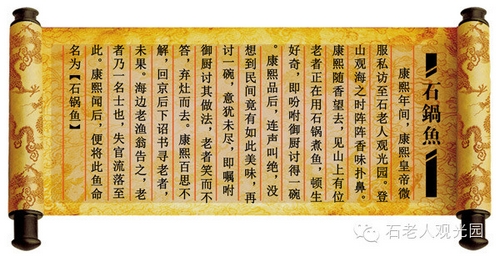 石鍋魚
康熙年间，康熙皇帝微
服私访至石老人观光园。登
山观海之时阵阵香味扑鼻。
康熙随香望去，见山上有位
老者正在用石锅煮鱼，顿生
好奇，即吩咐御厨讨得一碗
。康熙品后，连声叫绝，没
想到民间竟有如此美味，再
讨一碗，意犹未尽，即嘱咐
御厨讨其做法，老者笑而不
答，弃灶而去。康熙百思不
解，回京后下诏书寻老者，
未果。海边老渔翁告之，老
者乃一名士也，失官流落至
此。康熙闻后，便将此鱼命
名为【石锅鱼】
石老人观光园